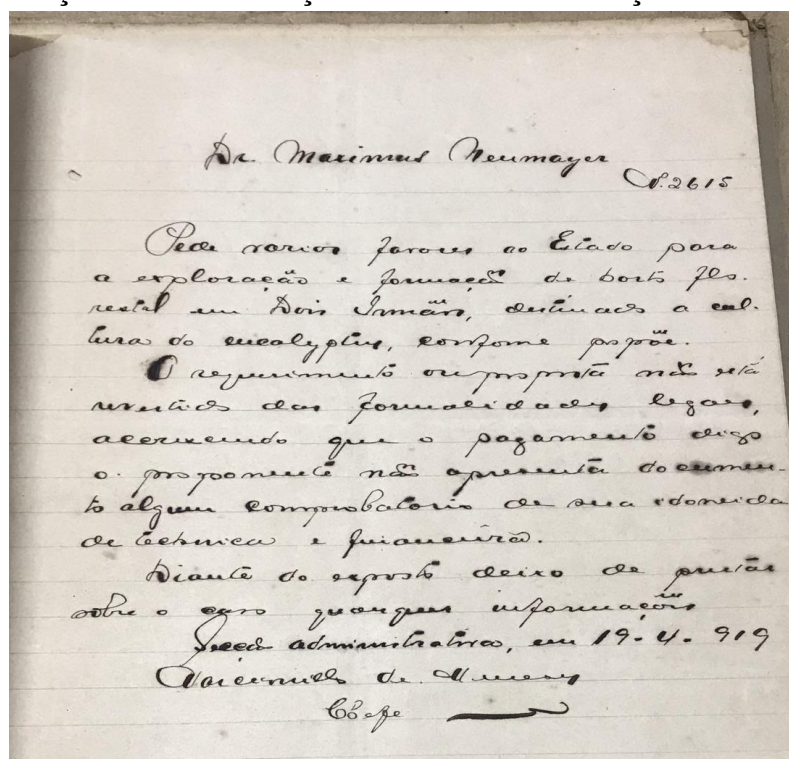 Dr. Maximus Neumayer
N. 2615
Pede varios favores ao Estado para
a exploração e formação de horto flo-
restal em Dois Irmãos, destinado a cul-
tura do eucalyptus, conforme propõe.
O requerimento ou proposta não está
revestido das formalidades legaes,
accrescendo que o pagamento digo
o proponente não apresenta documen-
to algum comprobatorio de sua idoneida
de technica e financeira.
Diante do exposto deixo de prestar
sobre o caso quaesquer informações
Secção administrativa, em 19-4-919
de
Chefe